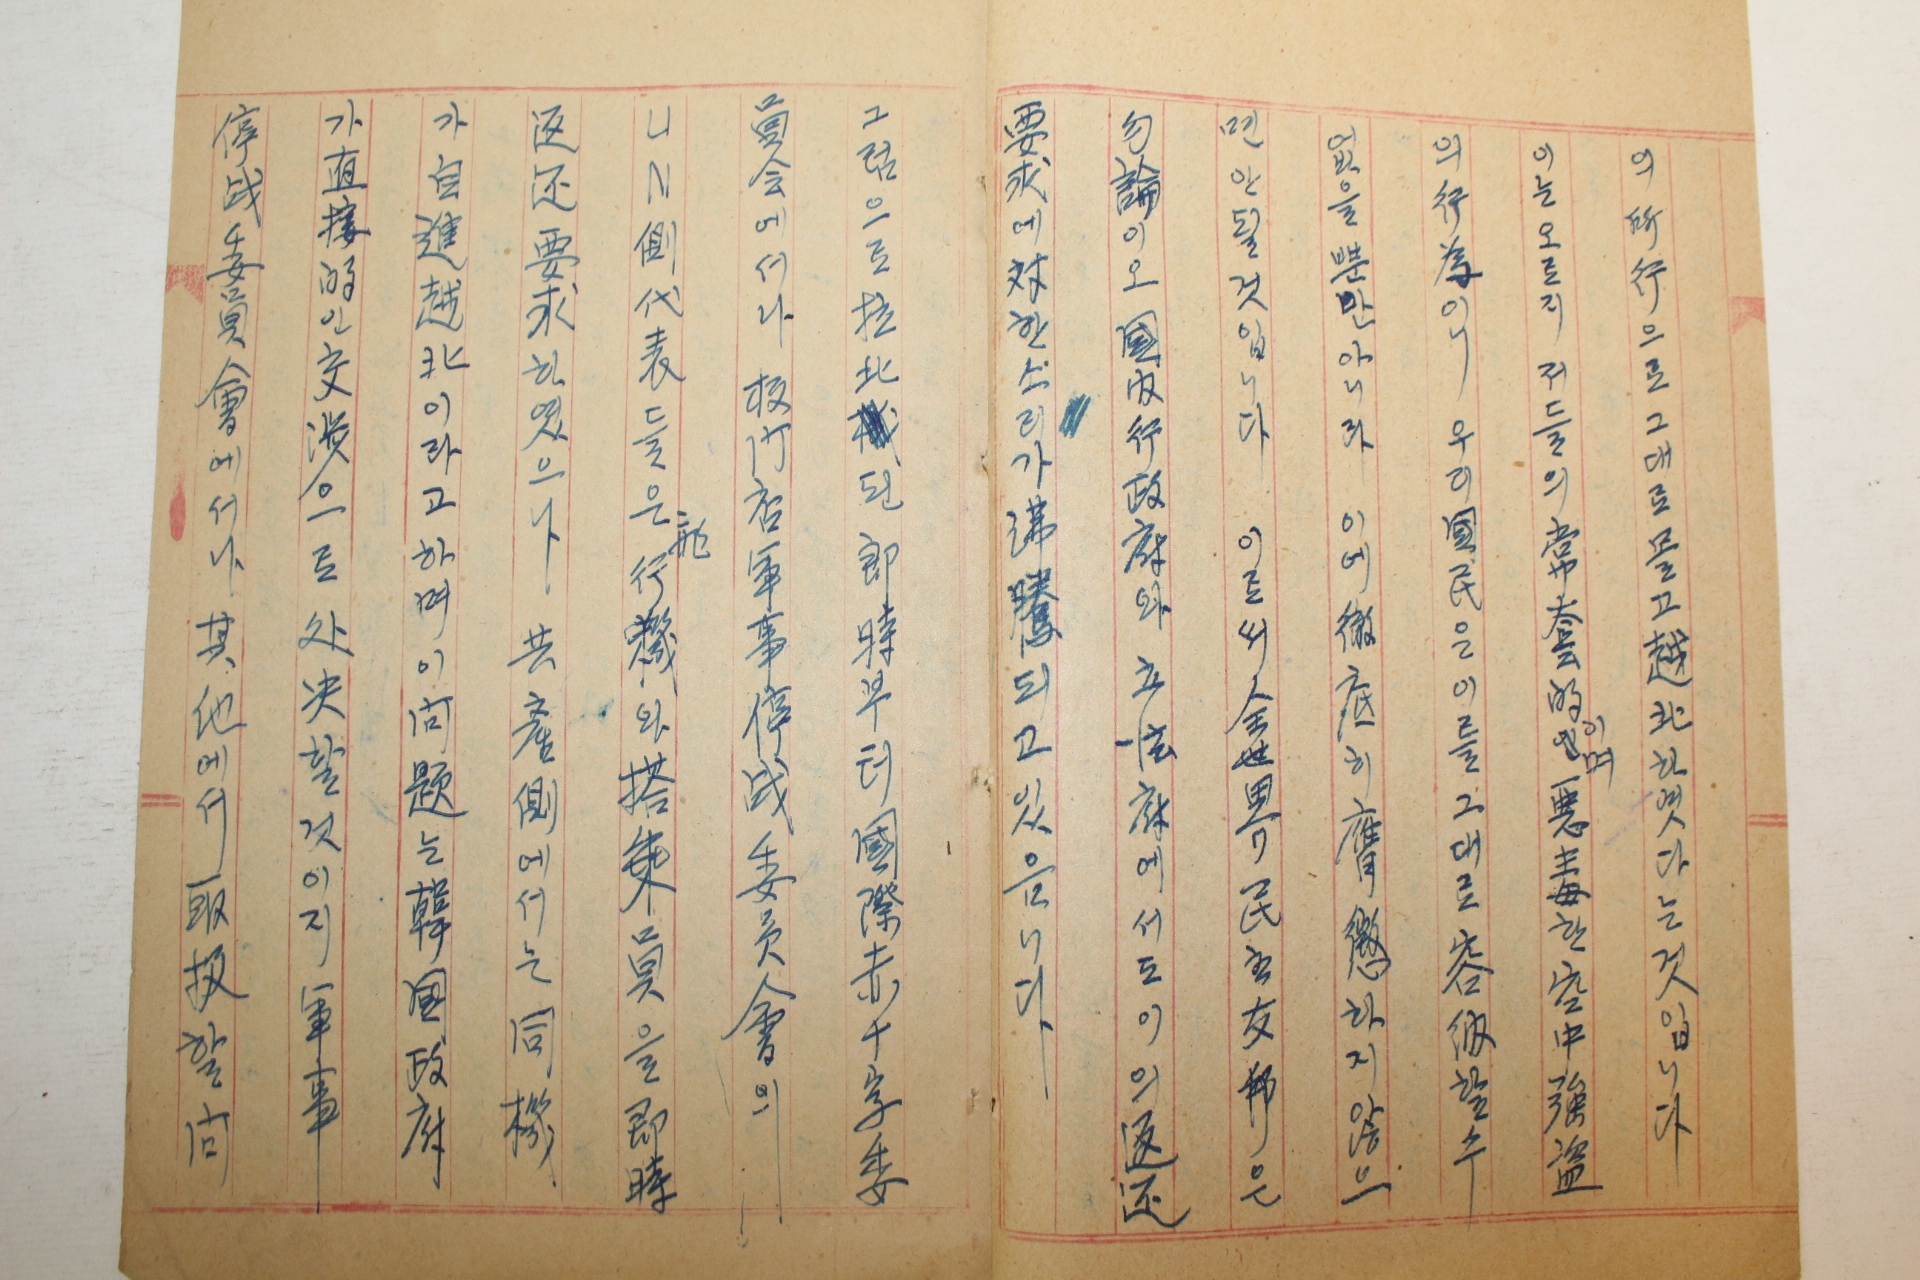 의 所行으로 그대로 몰고 越北하엿다는것입니다
이는오로지 저들의 常套的이며 惡毒한 空中强盜
의 行爲이니 우리 國民은 이를 그대로 容納할수
없을뿐만아니라 이에 徹底히 膺懲하지 않으
면 안될것입니다 이로써 全世界 民主友邦은
勿論이오 國內行政府와 立法府에서도 이의 返还
要求에 対한 소리가 沸騰되고 있읍니다
그럼으로 拉北된 即時부터 國際赤十字委
員会에서나 板门店 軍事停战委员會의
UN側代表들은 飛行機와 搭乘員을 即時
返还要求하였으나 共產側에서는 同機
가 自進越北이라고하며 이 问題는 韓國政府
가 直接的인 交涉으로 处決할것이지 軍事
停战委員會에서나 其他에서 取扱할 问